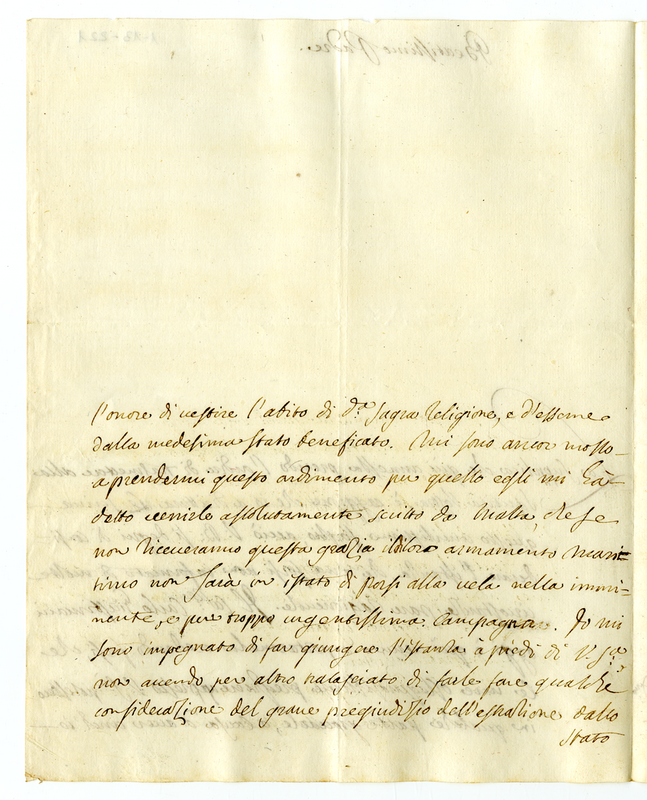 l'onore di vestire l'abito di d.ª Sagra Religione, e d'esserne
dalla medesima stato beneficato. Mi sono ancor mosso
a prendermi questo ardimento per quello egli mi hà
detto venirle assolutamente scritto da Malta, che se
non riceveranno questa grazia il loro armamento Mari=
timo non sarà in istato di porsi alla vela nella immi=
nente, e pur troppo urgentissima Campagna. Io mi
sono impegnato di far giungere l'istanza à piedi di V. S.tà
non avendo per altro tralasciato di farle fare qualche
considerazione del grave pregiudizio dell'estrazione dallo
stato